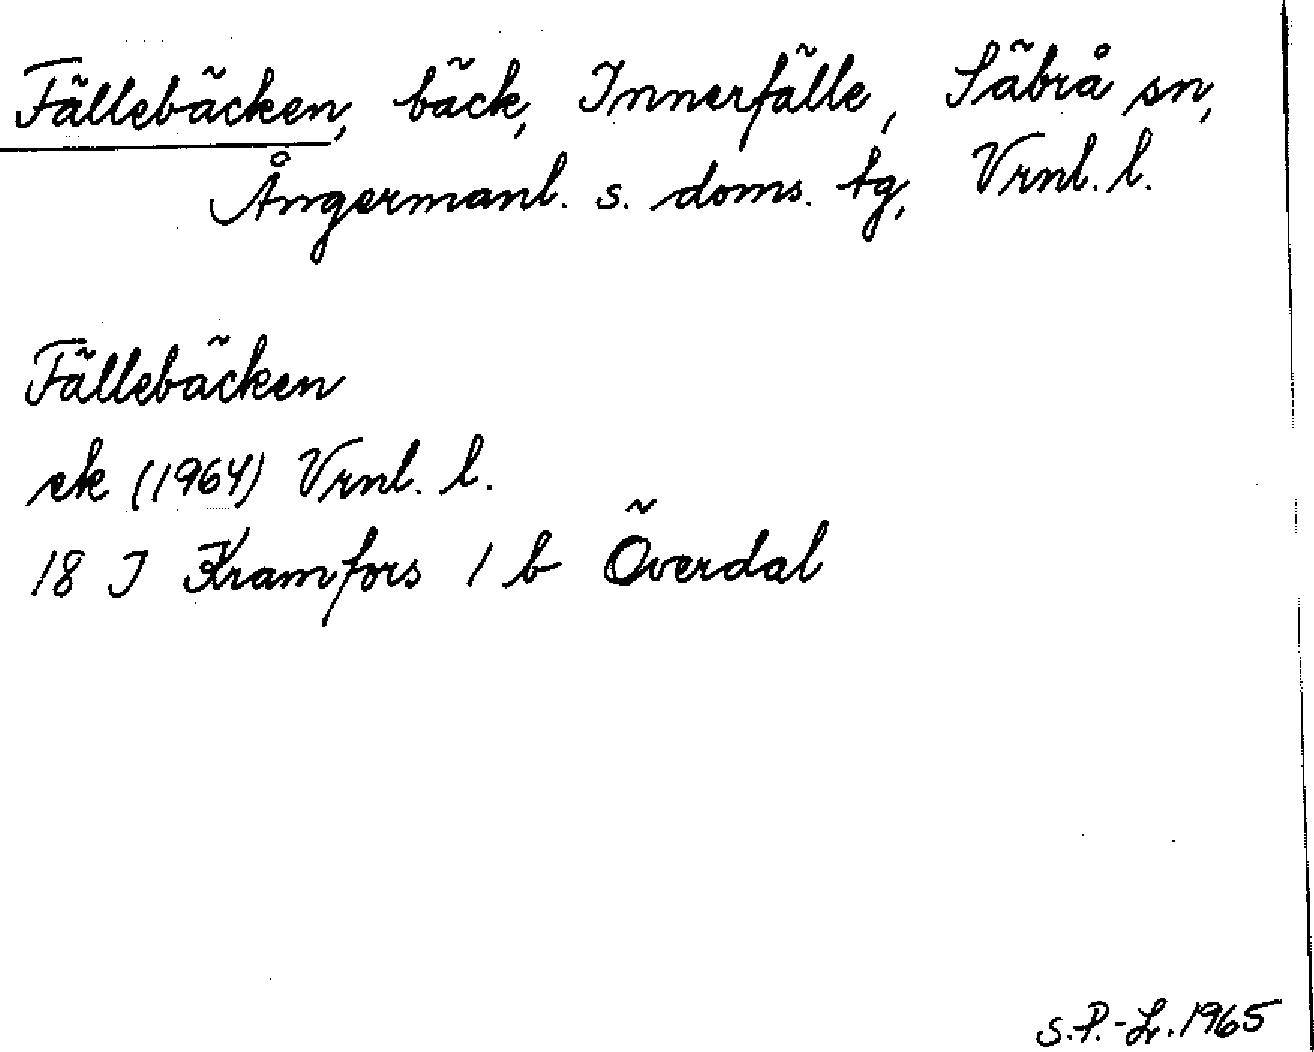 Fällebäcken, bäck, Innerfälle, Säbrå sn,
Ångermanl. s. doms. tg, Vrnl. l.
Fällebäcken
ek (1964) Vrnl. l.
18 I Kramfors 1 b Överdal
S.P.-Lr. 1965